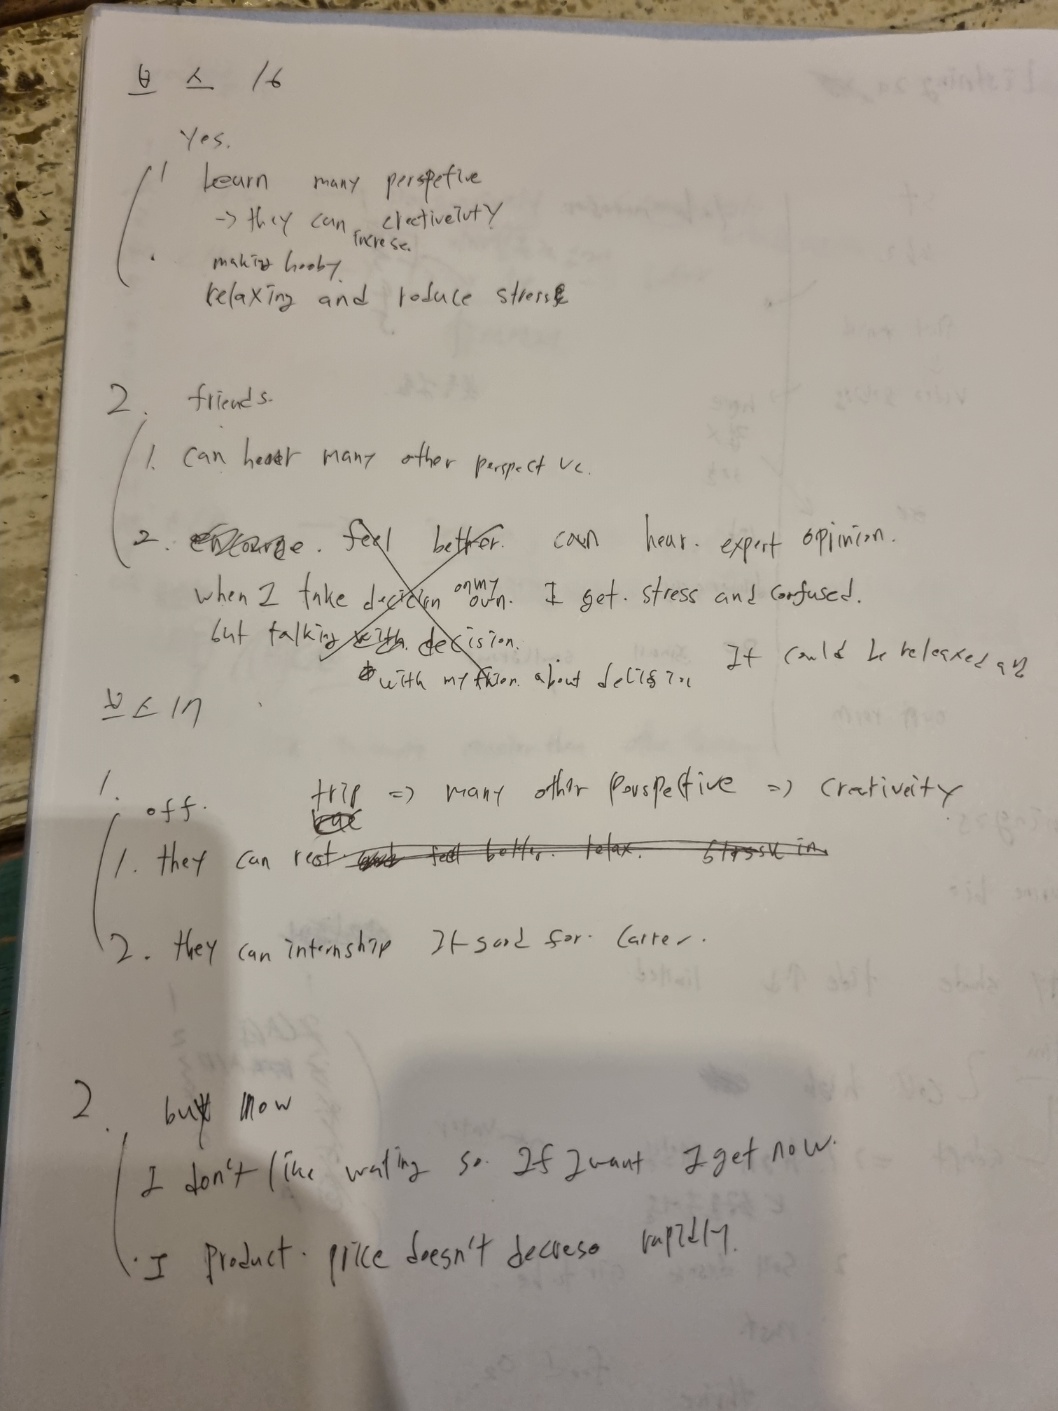 보스 16
Yes.
1 Learn many perspetive
-> they can increse. creativeivty
· making hooby.
relaxing and reduce stress
2. friends.
1. can hear many other perspective.
2. feel better. can hear. expert opinion.
when I take decision on my own. I get. stress and confused.
but talking with decision.
with my about decision It could be relexed
보스 17
1. off. trip => many other perspective => creativeity
1. they can rest feel better. relax.
2. they can internship It good for. carrer.
2. buy now
I don't like waiting so. If I want I get now.
· I product. price doesn't decrese rapidly.